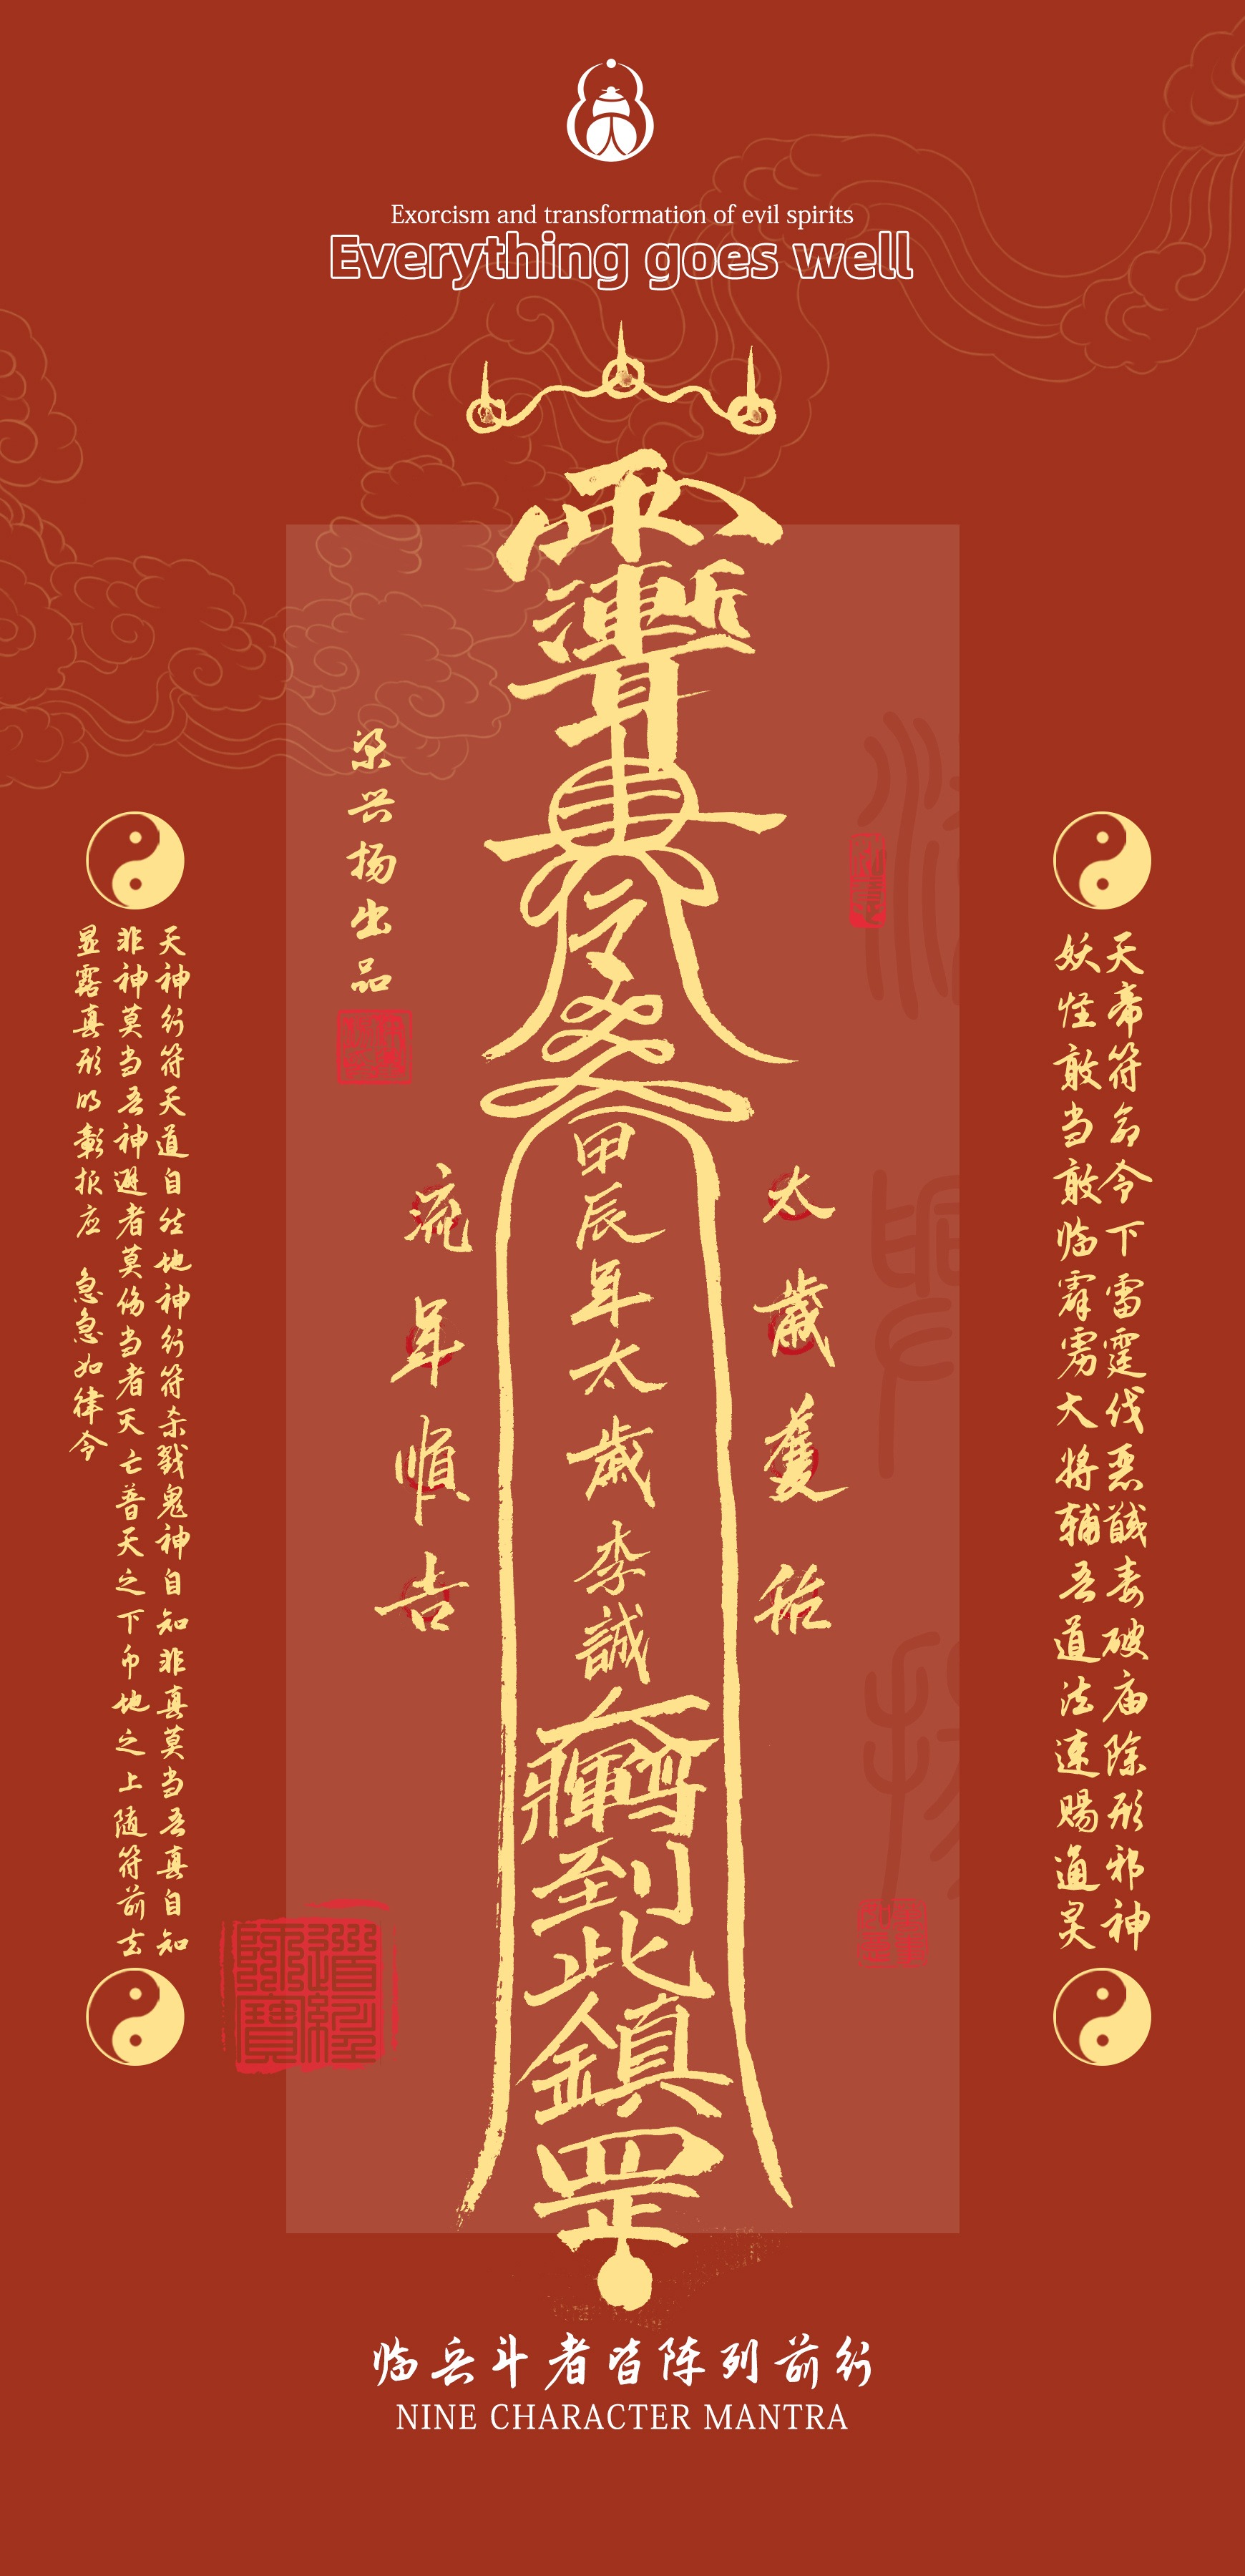 Exorcism and transformation of evil spirits
Everything goes well
天帝符命令下雷霆伐恶馘毒破庙除形邪神
妖怪敢当敢临霹雳大将辅吾道法速赐通灵
太歲獲祐
甲辰年太歲李誠
到此鎮罡
流年順吉
梁兴扬出品
天神行符天道自然地神行符杀戮鬼神自知非真莫当吾真自知
非神莫当吾神避者莫伤当者灭亡普天之下币地之上随符前去
显露真形明彰报应 急急如律令
道經師寶
临兵斗者皆阵列前行
NINE CHARACTER MANTRA